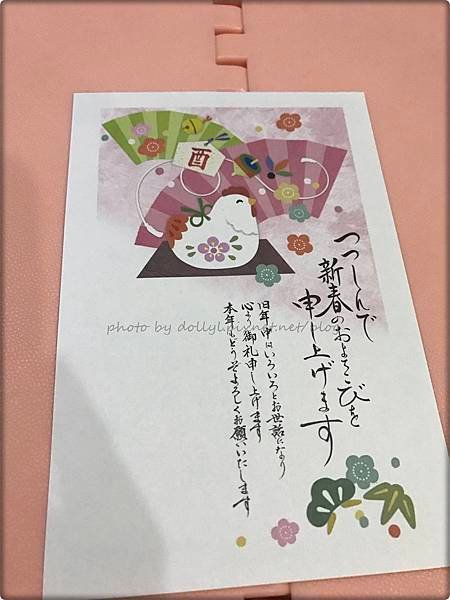 酉
つつしんで
新春のおよろこびを
申し上げます
旧年中はいろいろとお世話になり
心より御礼申し上げます
本年もどうぞよろしくお願いいたします
photo by dollyl.pixnet.net/blog